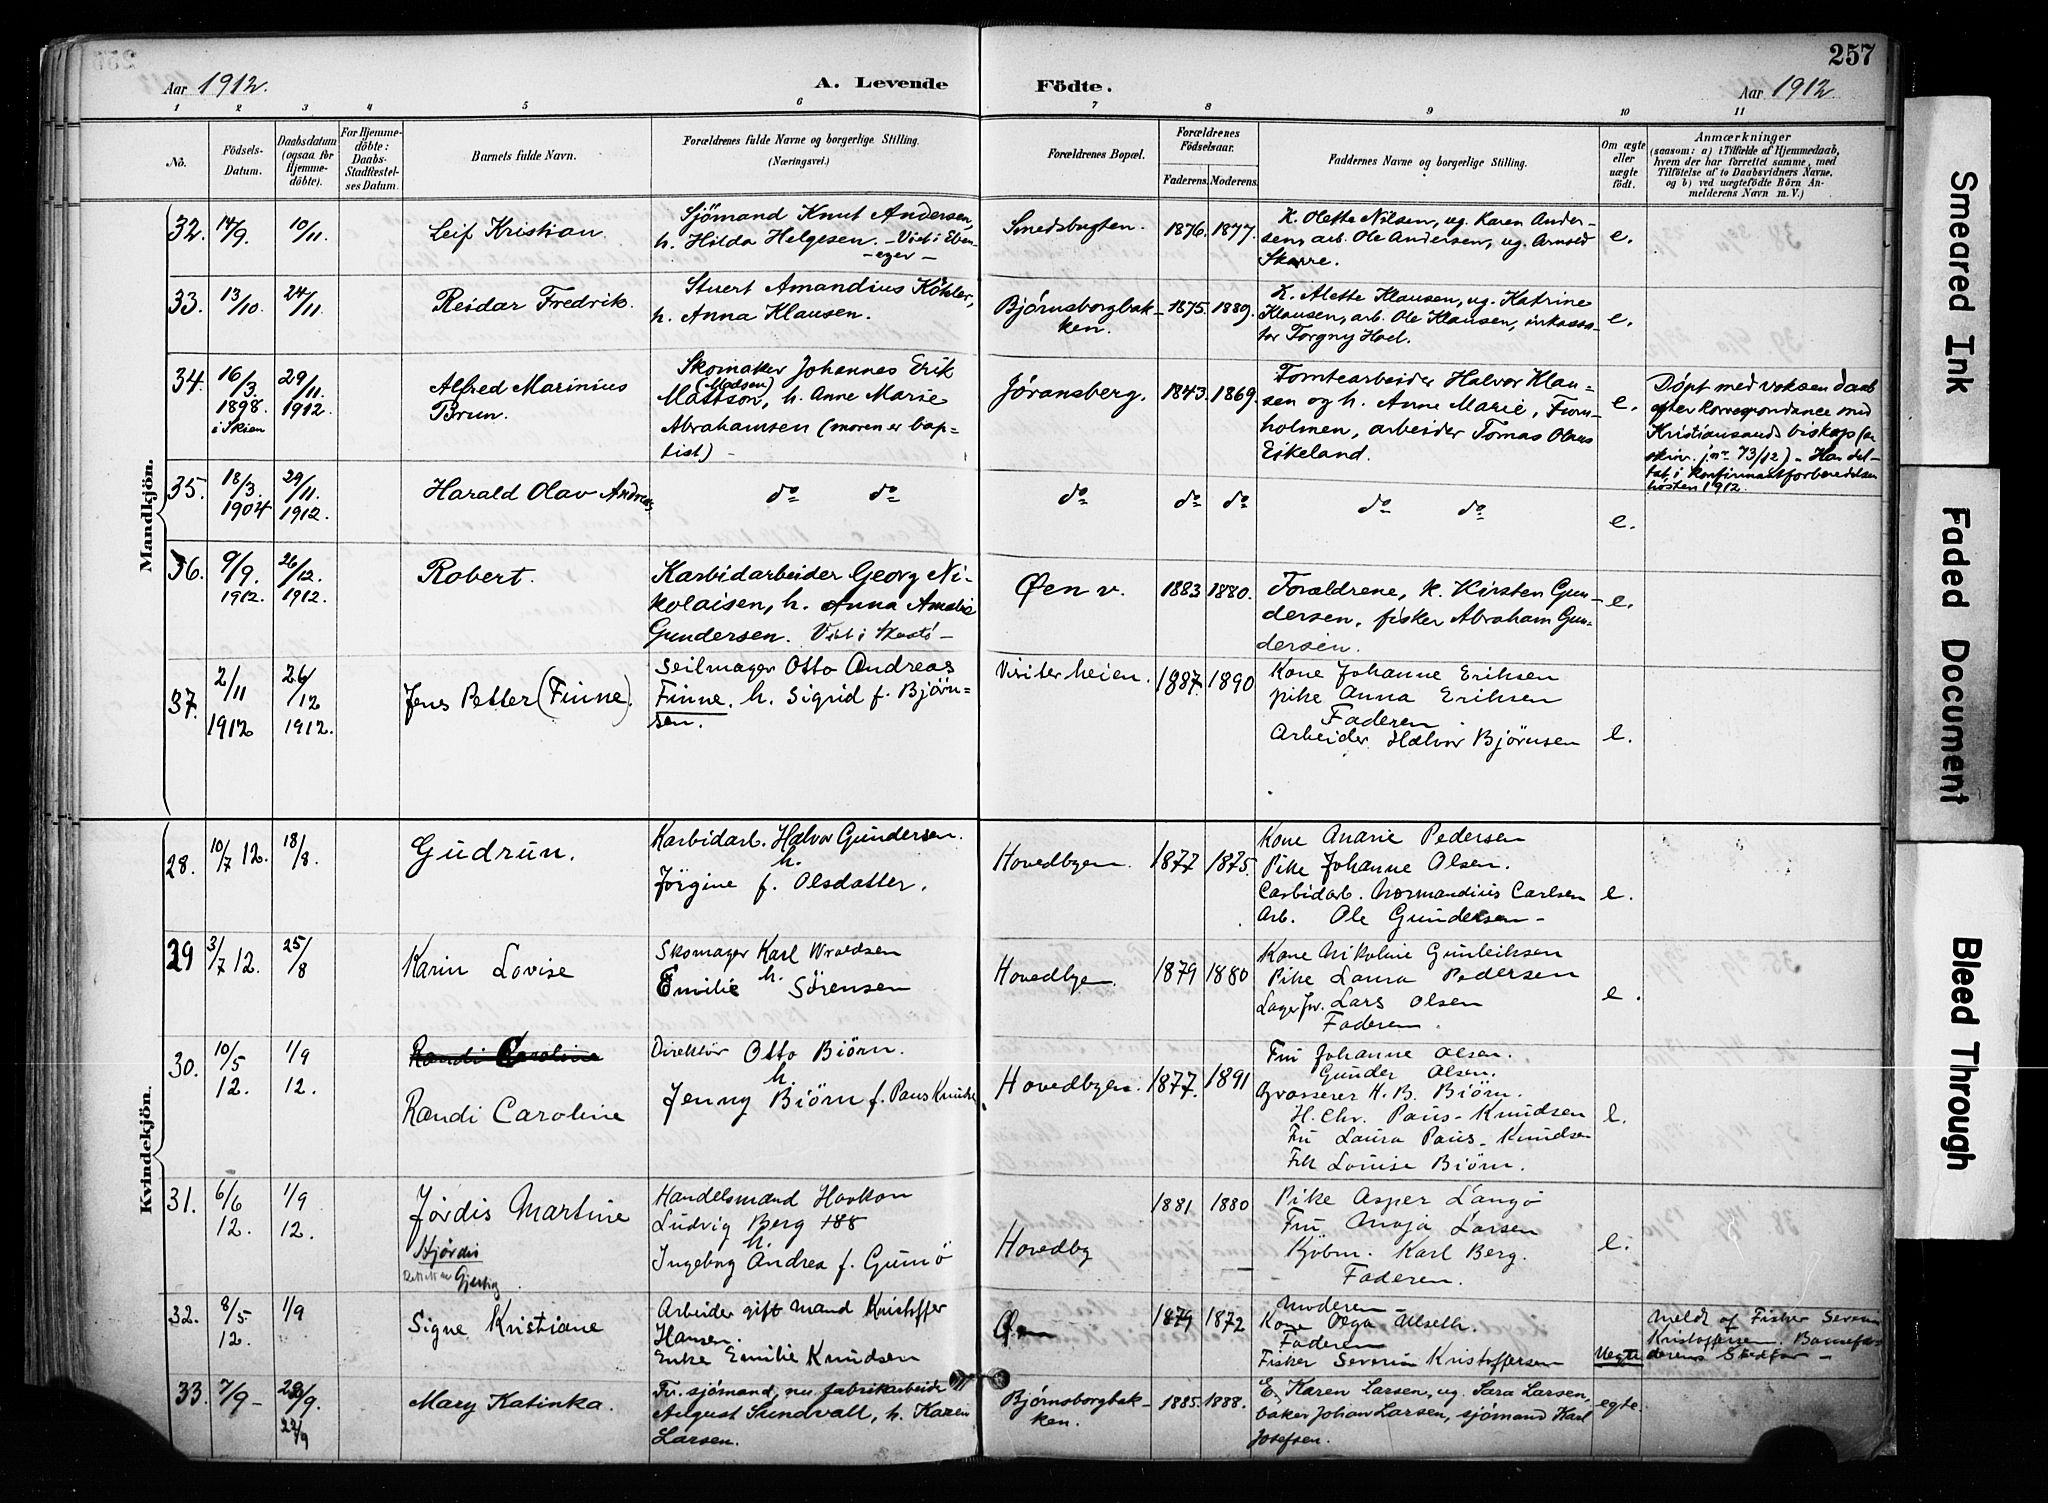 257
Aar 1912.
A. Levende Födte.
Aar 1912
1 2 3 4 5 6 7 8 9 10 11
No.
Födsels-
Datum.
Daabsdatum
(ogsaa for
Hjemme-
döbte).
For Hjemme-
döbte:
Daabs-
Stadfæstel-
ses Datum.
Barnets fulde Navn.
Forældrenes fulde Navne og borgerlige Stilling.
(Næringsvei.)
Forældrenes Bopæl.
Forældrenes
Födselsaar.
Faderens. Moderens.
Faddernes Navne og borgerlige Stilling.
Om ægte
eller
uægte
födt.
Anmærkninger
(saasom: a) i Tilfælde af Hjemmedaab,
hvem der har forrettet samme, med
Tilföielse af to Daabsvidners Navne,
og b) ved uægtefödte Börn An-
melderens Navn m. V.)
Mandkjön.
32. 14/9. 10/11. Leif Kristian.
Sjömand Knut Andersen,
h. Hilda Helgesen. - Viet i Eben-
- ezer -
Smedsbugten. 1876. 1877.
K. Olette Nilsen, ug. Karen Ander-
sen, arb. Ole Andersen, ug. Arnold
Skarre.
e.
33. 13/10. 24/11. Reidar Fredrik.
Stuert Amandius Köhler,
h. Anna Klausen.
Bjørnsborgbak-
ken.
1875. 1889.
K. Alette Klausen, ug. Katrine
Klausen, arb. Ole Klausen, inkassa-
tor Torgny Hoel.
e.
34. 16/3. 1898. i Skien 29/11. 1912. Alfred Marinius
Brun.
Skomaker Johannes Erik
(Madsen)
Mattson, h. Anne Marie
Abrahamsen (moren er bap-
tist) -
Jøransberg. 1843. 1869.
Tomtearbeider Halvor Klau-
sen og h. Anne Marie,
holmen, arbeider Tomas Olaus
Eikeland.
e.
Döpt med voksen daab
efter korrespondance med
Kristiansands biskop (se
skriv. jnr 73/12). - Har del-
tat i konfirmantforberedelsen
høsten 1912.
35. 18/3. 1904 29/11. 1912. Harald Olav Andreas
do do do do do do do
e.
36. 9/9. 1912. 26/12. 1912. Robert.
Karbidarbeider Georg Ni-
kolaisen, h. Anna Amalie
Gundersen. Viet i
Øen v. 1883 1880.
Forældrene, k. Kirsten Gun-
dersen, fisker Abraham Gun-
dersen.
e.
37. 2/11 1912 26/12 1912. Jens Petter (Finne).
Seilmager Otto Andreas
Finne. h. Sigrid f. Bjørn-
sen.
Visiterheien. 1887. 1890
Kone Johanne Eriksen
pike Anna Eriksen
Faderen
Arbeider Halvor Bjørnsen
e.
Kvindekjön.
28. 10/7 12. 18/8. Gudrun.
Karbidarb. Halvor Gundersen.
h.
Jörgine f. Olsdatter.
Hovedbyen. 1877 1875.
Kone Marie Pedersen
Pike Johanne Olsen.
Carbidarb. Normandius Carlsen
Arb. Ole Gundersen -
e.
29 3/7 12. 25/8 Karin Lovise
Skomager Karl Wroldsen
h.
Emilie Sörensen
Hovedbyen. 1879 1880
Kone Nikoline Gunleiksen
Pike Laura Pedersen
Lagerfor. Lars Olsen
Faderen.
e.
30. 10/5 12. 1/9 12. Randi Caroline
Randi Caroline
Direktör Otto Biörn.
h.
Jenny Biörn f. Paus Knudse
Hovedbyen. 1877. 1891
Fru Johanne Olsen.
Gunder Olsen.
Grosserer H. B. Biörn.
H. Chr. Paus-Knudsen
Fru Laura Paus-Knudsen
Frk Louise Biörn.
e.
31. 6/6 12. 1/9 12. Jördis Martine
Hjördis
Handelsmand Haakon
Ludvig Berg 188
h.
Ingeborg Andrea f. Gumö
Hovedby 1881 1880
Pike Asper Langö
Fru Maja Larsen
Kjöbm. Karl Berg.
Faderen.
e.
32. 8/5. 12. 1/9 Signe Kristiane
Arbeider gift mand Kristoffer
Hansen.
Enke Emilie Knudsen
Øen 1879 1872
Moderen -
Kone Olga Ulseth.
Faderen
Fisker Severin Kristoffersen
Uegte
Meldt af Fisker Severin
Kristoffersen. Barnefa-
derens Stedfar -
33. 7/9 - 29/9. 22/9 Mary Katinka.
Fv. sjömand, nu fabrikarbeide
August Sundvall, h. Karen
Larsen.
Bjørnsborgbak-
ken.
1885. 1888.
E. Karen Larsen, ug. Sara Larsen,
baker Johan Larsen, sjömand Karl
Josefsen.
egte.
Smeared Ink
Faded Document
Bleed Through